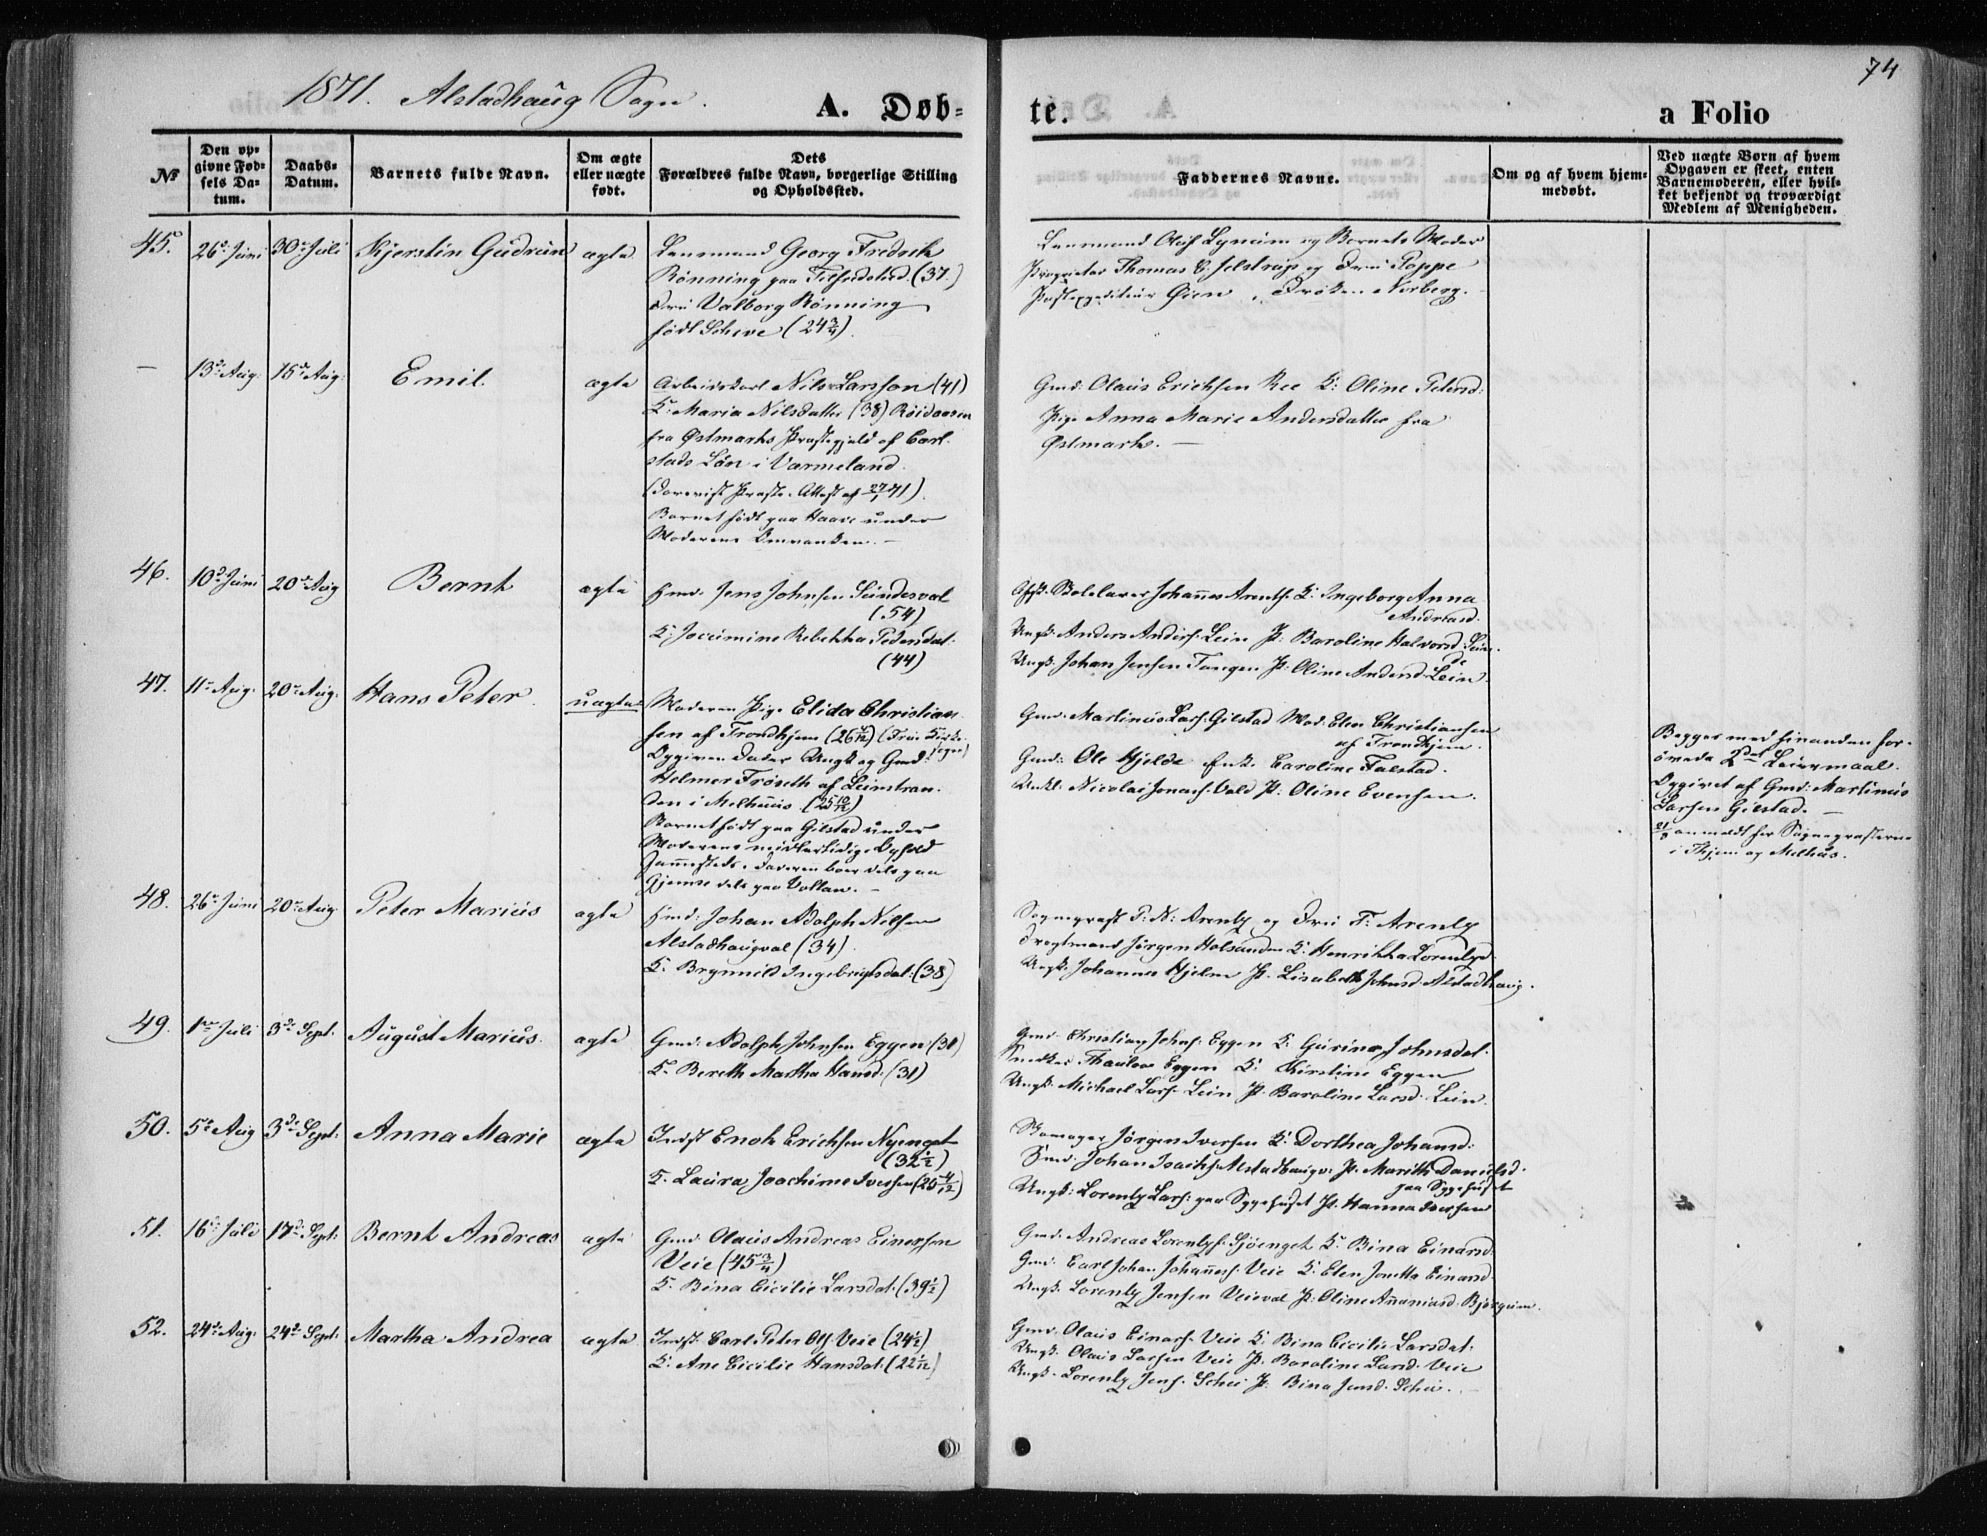 1871. Alstadhaug Sogn.
A. Døb-
te.
a Folio
74
No
Den op-
givne Fød-
sels Da-
tum.
Daabs-
Datum.
Barnets fulde Navn.
Om ægte
eller uægte
født.
Dets
Forældres fulde Navn, borgerlige Stilling
og Opholdssted.
Faddernes Navne.
Om og af hvem hjem-
medøbt.
Ved uægte Børn af hvem
Opgaven er skeet, enten
Barnemoderen, eller hvil-
ket bekjendt og troværdigt
Medlem af Menigheden.
45. 26de Juni 30te Juli Kjerstin Gudrun ægte
Lensmand Georg Fredrik
Rønning paa (37.)
Fru Valborg Rønning
født Schive (24 3/4)
Lensmand Oluf Lynum og Barnets Moder
Proprietær Thomas Jelstrup og Fru Poppe
Postexpediteur Øien, Frøken Norberg.
— 13de Aug. 15de Aug. Emil. ægte
Arbeidskarl Nils Larsson (41)
K. Maria Nilsdatter (38)
fra Østmarks Præstegjeld af Carl-
stads Län i Värmeland.
Barnet født paa Haave under
Moderens
Gmd. Olaus Ericksen Ree K. Oline Petersd.
Pige Anna Marie Andersdatter fra
Østmark. —
46. 10de Juni 20de Aug Bernt ægte
Hmd. Jens Johnsen Sundesval
(54)
K. Jocumine Rebekka Pedersdat.
(44)
Skolelærer Johannes Arents. K. Ingeborg Anna
Andreasd.
Ungk. Anders Anders. Lein P. Baroline Halvorsd. Sun-
de
Ungk. Johan Jensen Tangen P. Oline Andersd. Lein.
47. 11te Aug. 20de Aug. Hans Peter. uægte
Moderen Pige Elida Christian-
sen af Trondhjem (26
Opgiven Fader Ungk. og Gmd.
Helmer Frøseth af Leinstran-
den i Melhuus (25 10/12)
Barnet født paa Gilstad under
Moderens midlertidige Ophold
sammesteds. Faderen boer dels paa
Gjemse dels paa Vollan. —
Gmd. Martinus Lars. Gilstad Mad. Elen Christiansen
af Trondhjem.
Gmd. Ole Hjelde Enke Caroline Falstad.
Ungk. Nicolai Jonas. Vold P. Oline Evensen.
Begges med hinanden for-
øvede 2det Leiermaal.
Opgivet af Gmd. Martinus
Larsen Gilstad. —
anmeldt for Sognepræsterne
i Thjem og Melhus.
48. 26de Juni 20de Aug Peter Marius ægte
Hmd. Johan Adolph Nilsen
Alstadhaugval (34).
K. Brynnild Ingebrigtsdat. (38)
Sognepræst P. N. Arentz og Fru F. Arentz
Fragtmand Jørgen Holsanden K. Henrikka Lorentzd.
Ungk. Johannes Hjelm P. Lisabeth Johnsd. Alstadhaug.
49. 1ste Juli 3de Sept. August Marius. ægte
Gmd. Adolph Johnsen Eggen (31)
K. Bereth Martha Hansd. (31)
Gmd. Christian Johns. Eggen K. Gurine Johnsdat.
Snedker Thaulow Eggen K. Kirstine Eggen
Ungk. Michael Lars. Lein P. Baroline Larsd. Lein.
50. 5te Aug 3de Sept. Anna Marie ægte
Indst. Enok Erichsen Nyenget
(32 1/2)
K. Laura Joachime Iversen (25 4/12)
Skomager Jørgen Iversen K. Dorthea Johansd.
Hmd. Johan Isachs. Alstadhaugv. P. Marith Danielsd.
paa Sygehuset
Ungk. Lorentz Lars. paa Sygehuset P. Hanna Iversen
51. 16de Juli 17de Sept. Bernt Andreas ægte
Gmd. Olaus Andreas Einersen
Veie (45 3/4)
K. Bina Cicilie Larsdat. (39 1/2)
Gmd. Andreas Lorentzs. Sjøenget K. Bina Einarsd.
Gmd. Carl Johan Johannes. Veie K. Elen Jonetta Einarsd.
Ungk. Lorentz Jensen Veieval P. Oline Ananiasd. Bjørgum.
52. 24de Aug. 24de Sept. Martha Andrea ægte
Indst. Carl Peter Ols. Veie (24 1/2)
K. Ane Cicilie Hansdat. (22 1/12)
Gmd. Olaus Einars. Veie K. Bina Cicilie Larsdat.
Ungk. Olaus Larsen Veie P. Baroline Larsd. Veie
Ungk. Lorentz Jens. Schei P. Bina Jensd. Schei.